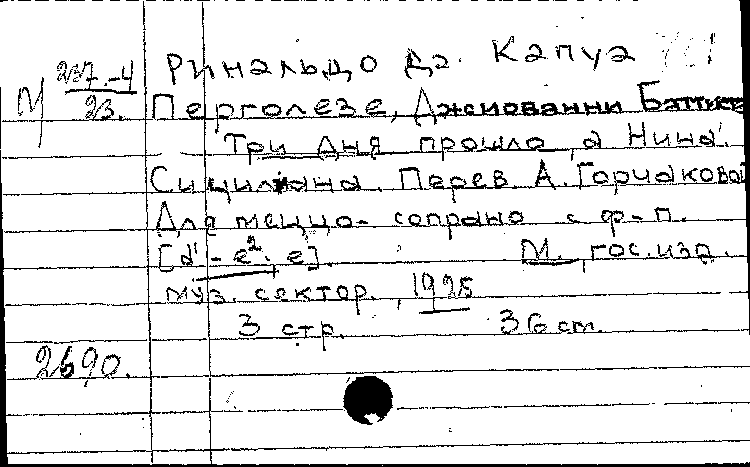 Ринальдо да Капуа
М 237-4
23.
Перголезе, Джиованни Баттиста
Три дня прошло, а Нина.
Сицилиана. Перев. А. Горчаковой
Для меццо-сопрано с ф-п.
[d¹ - e²; e]. М., гос. изд.
муз. сектор, 1925
3 стр. 36 cm.
2690.